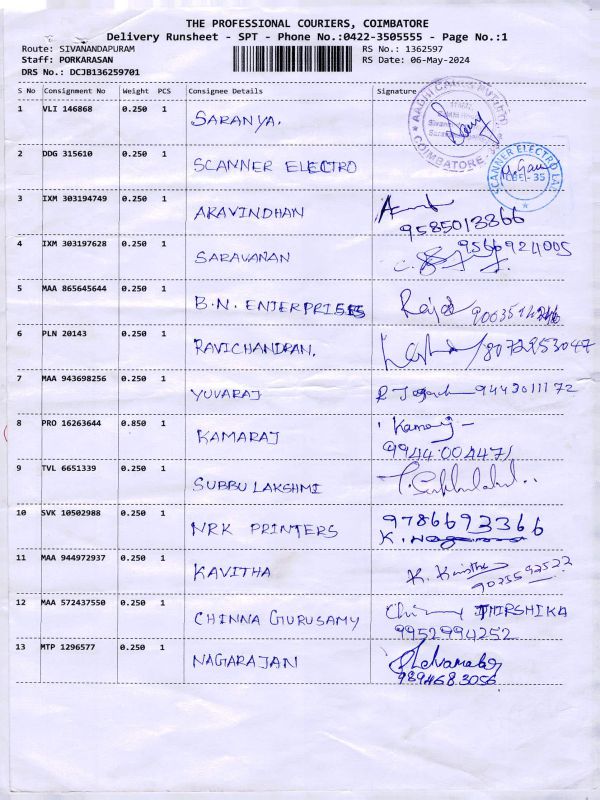 THE PROFESSIONAL COURIERS, COIMBATORE
Delivery Runsheet - SPT - Phone No.:0422-3505555 - Page No.:1
Route: SIVANANDAPURAM RS No.: 1362597
Staff: PORKARASAN RS Date: 06-May-2024
DRS No.: DCJB136259701
S No Consignment No Weight PCS Consignee Details Signature
1 VLI 146868 0.250 1 SARANYA.
COIMBATORE
2 DDG 315610 0.250 1 SCANNER ELECTRO
SCANNER ELECTRO LAB
CBE - 35
3 IXM 303194749 0.250 1 ARAVINDHAN
9585013366
4 IXM 303197628 0.250 1 SARAVANAN 9566924005
5 MAA 865645644 0.250 1 B.N. ENTERPRISES
6 PLN 20143 0.250 1 RAVICHANDRAN. 8072953047
7 MAA 943698256 0.250 1 YUVARAJ 9443011172
8 PRO 16263644 0.850 1 KAMARAJ Kamaraj
9944004471
9 TVL 6651339 0.250 1 SUBBU LAKSHMI
10 SVK 10502988 0.250 1 NRK PRINTERS 9786693366
11 MAA 944972937 0.250 1 KAVITHA
12 MAA 572437550 0.250 1 CHINNA GURUSAMY
9952994252
13 MTP 1296577 0.250 1 NAGARAJAN
9894683056